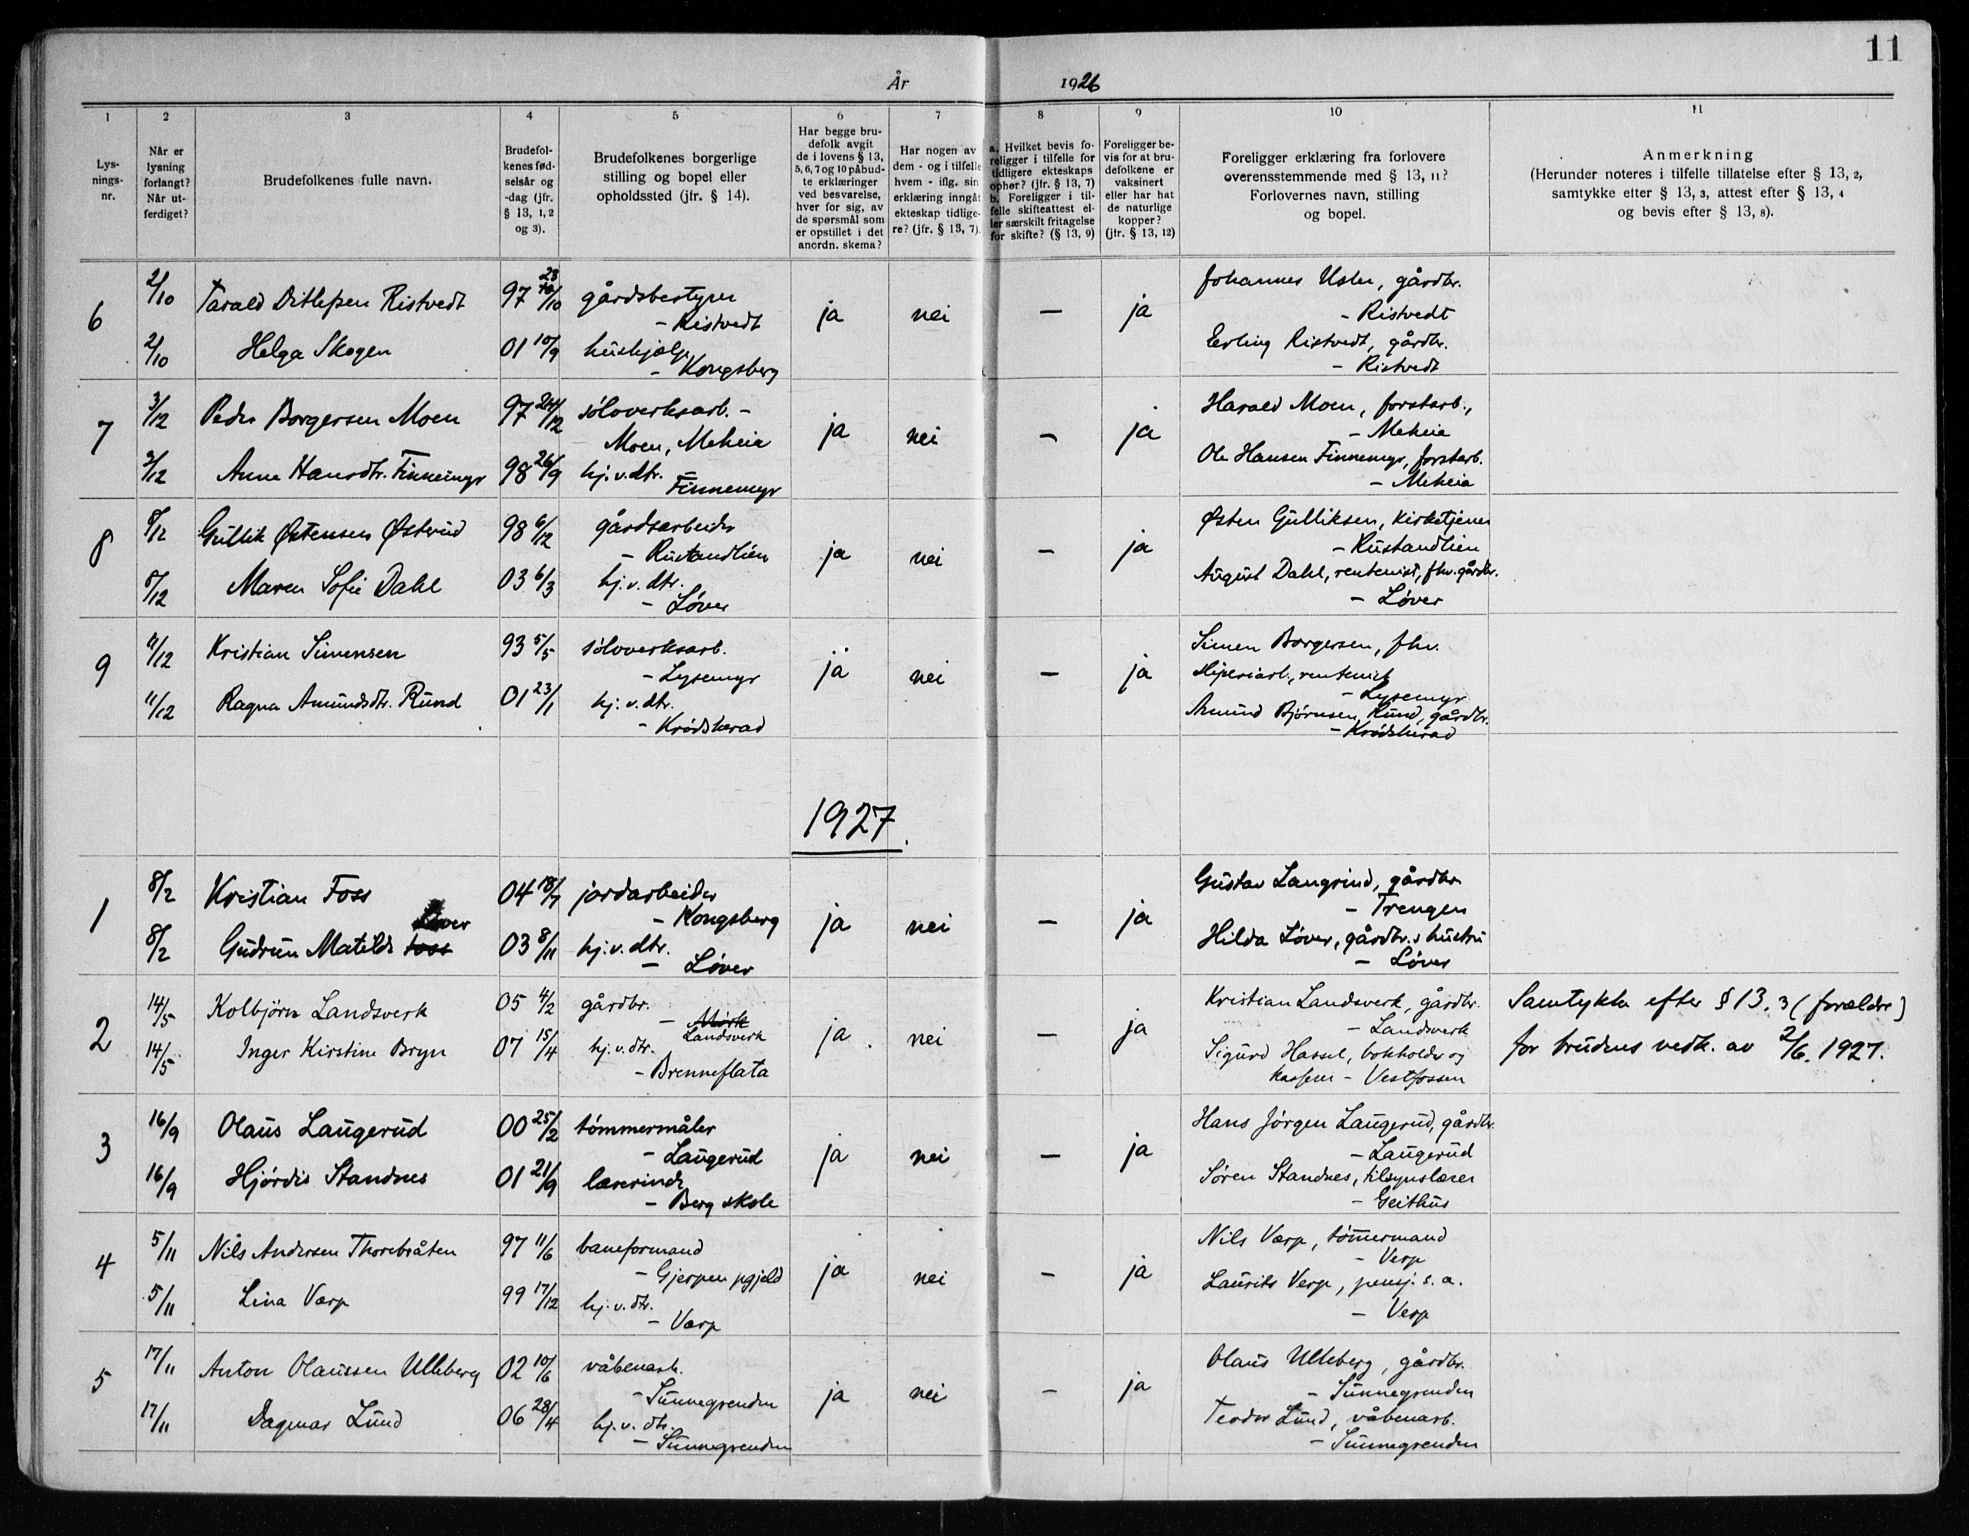 11
År 1926
1 2 3 4 5 6 7 8 9 10 11
Lys-
nings-
nr.
Når er
lysning
forlangt?
Når ut-
ferdiget?
Brudefolkenes fulle navn.
Brudefol-
kenes fød-
selsår og
-dag (jfr.
§ 13, 1, 2
og 3).
Brudefolkenes borgerlige
stilling og bopel eller
opholdssted (jfr. § 14).
Har begge bru-
defolk avgit
de i lovens § 13,
5, 6, 7 og 10 påbud-
te erklæringer
ved besvarelse,
hver for sig, av
de spørsmål som
er opstillet i det
anordn. skema?
Har nogen av
dem - og i tilfelle
hvem - iflg. sin
erklæring inngåt
ekteskap tidlige-
re? (jfr. § 13, 7).
a. Hvilket bevis fo-
religger i tilfelle for
tidligere ekteskaps
ophør? (jfr. § 13, 7)
b. Foreligger i til-
felle skifteattest el-
ler særskilt fritagelse
for skifte? (§ 13, 9)
Foreligger be-
vis for at bru-
defolkene er
vaksinert
eller har hat
de naturlige
kopper?
(jfr. § 13, 12)
Foreligger erklæring fra forlovere
overensstemmende med § 13, 11?
Forlovernes navn, stilling
og bopel.
Anmerkning
(Herunder noteres i tilfelle tillatelse efter § 13, 2,
samtykke efter § 13, 3, attest efter § 13, 4
og bevis efter § 13, 8).
6 2/10 Tarald Ditlefsen Ristvedt 97 23/10 gårdsbestyrer
- Ristvedt
ja nei — ja
Johannes Usler, gårdbr.
- Ristvedt
2/10 Helga Skogen 01 10/9 hushjælp
- Kongsberg
Erling Ristvedt, gårdbr.
- Ristvedt
7 3/12 Peder Borgersen Moen 97 24/12 sølvverksarb. -
Moen, Meheia
ja nei — ja
Harald Moen, forstarb.,
- Meheia
3/12 Anne Hansdtr. Finnemyr 98 26/9 hj.v.dtr.
Finnemyr
Ole Hansen Finnemyr, forstarb.
- Meheia
8 8/12 Gullik Østensen Østerud 98 6/12 gårdsarbeider
- Rustandlien
ja nei — ja
Østen Gulliksen, kirketjener
- Rustandlien
8/12 Maren Sofie Dahl 03 6/3 hj.v.dtr.
- Løver
August Dahl, rentenist, fhv. gårdbr.
- Løver
9 11/12 Kristian Simensen 93 5/5 sølvverksarb.
- Lysemyr
ja nei — ja
Simen Borgersen, fhv.
sliperiarb., rentenist
- Lysemyr
11/12 Ragna Amundsdtr. Rund 01 23/1 hj.v.dtr.
- Krødsherad
Amund Bjørnsen Rund, gårdbr.
- Krødsherad
1927.
1 8/2 Kristian Foss 04 18/7 jordarbeider
- Kongsberg
ja nei — ja
Gustav Langrind, gårdbr.
- Trengen
8/2 Gudrun Matilde Foss Løver 03 8/11 hj.v.dtr.
- Løver
Hilda Løver, gårdbr.s hustru
- Løver
2 14/5 Kolbjørn Landsverk 05 4/2 gårdbr.
- Mørk
Landsverk
ja nei — ja
Kristian Landsverk, gårdbr.
- Landsverk
Samtykke efter § 13, 3 (forældre)
14/5 Inger Kirstine Bryn 07 15/4 hj.v.dtr.
- Brenneflata
Sigurd Hassel, bokholder og
kasserer - Vestfossen
for brudens vedk. av 2/6. 1927.
3 16/9 Olaus Laugerud 00 25/2 tømmermåler
- Laugerud
ja nei — ja
Hans Jørgen Laugerud, gårdbr.
- Laugerud
16/9 Hjørdis Standnes 01 21/9 lærerinde
- Berg skole
Søren Standnes, tilsynslærer
- Geithus
4 5/11 Nils Andersen Thorebråten 97 11/6 baneformand
- Gjerpen pgjeld
ja nei — ja
Nils Værp, tømmermand
- Verp
5/11 Lina Værp 99 17/12 hj.v.dtr.
- Værp
Laurits Verp, pensj. s.a.
- Verp
5 17/11 Anton Olaussen Ulleberg 02 10/6 våbenarb.
- Sunnegrenden
ja nei — ja
Olaus Ulleberg, gårdbr.
- Sunnegrenden
17/11 Dagmar Lund 06 28/4 hj.v.dtr.
- Sunnegrenden
Teodor Lund, våbenarb.
- Sunnegrenden